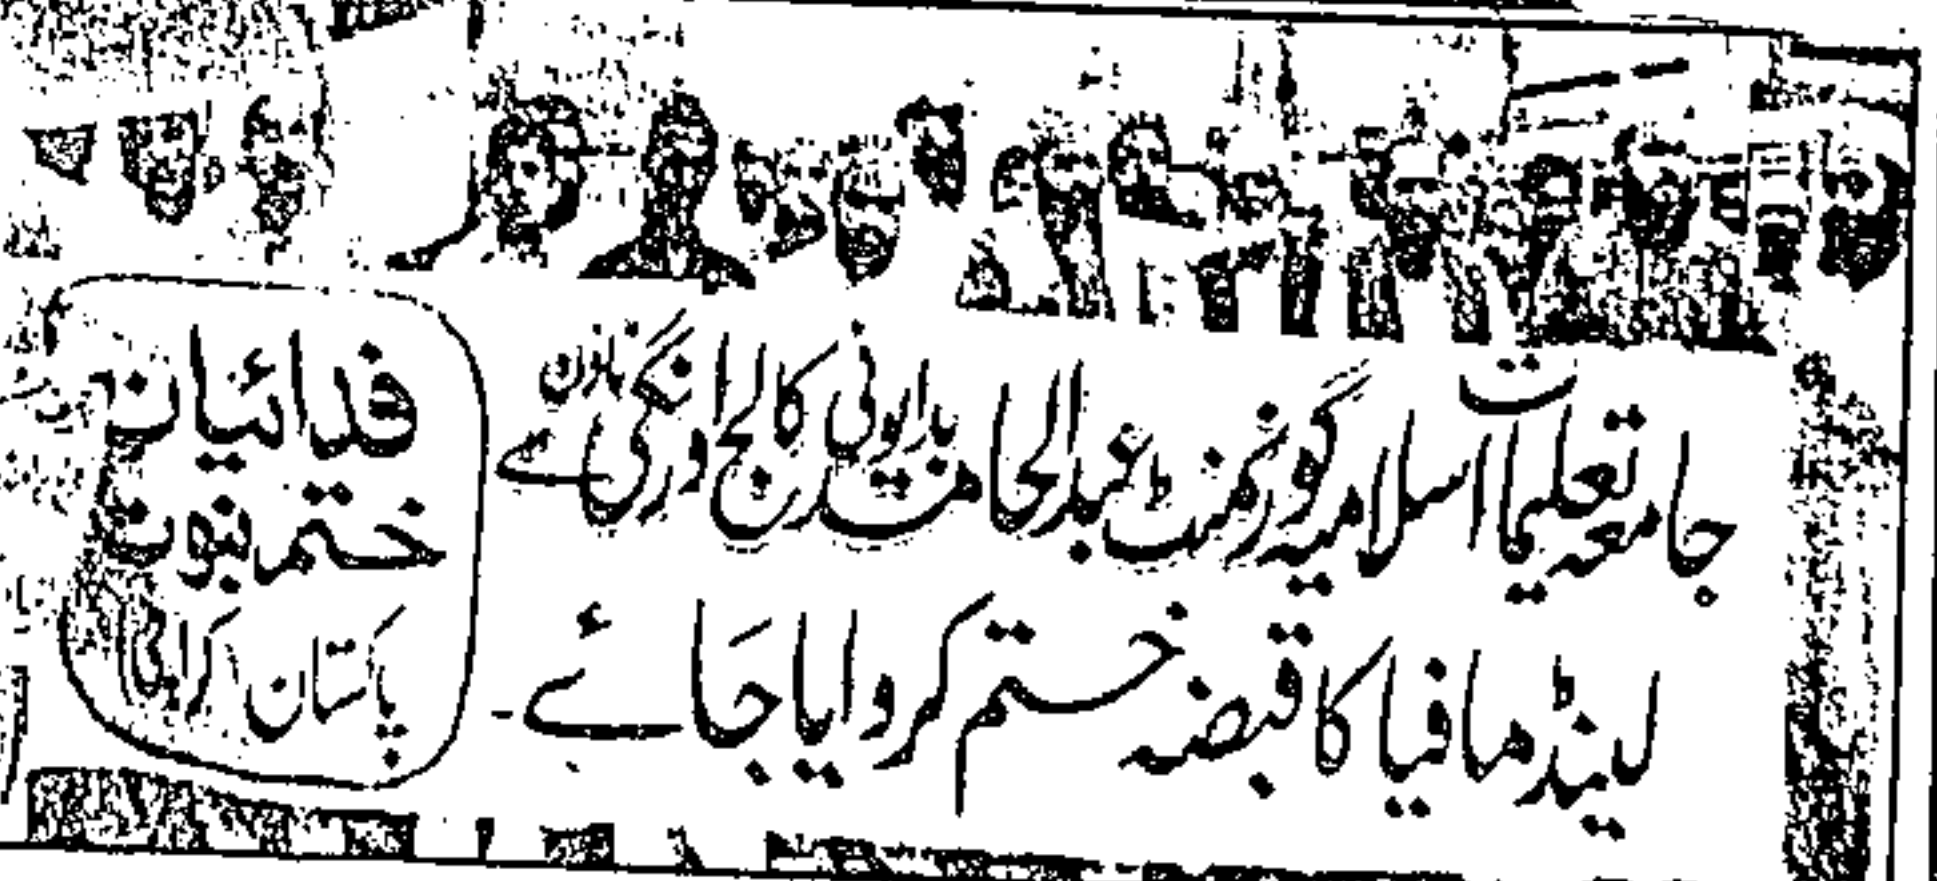 جامعہ تعلیمات اسلامیہ گورنمنٹ عبدالحامد بدایونی کالج اورنگی ٹاؤن سے
لینڈ مافیا کا قبضہ ختم کروایا جائے۔
فدائیان
ختم نبوت
پاکستان کراچی